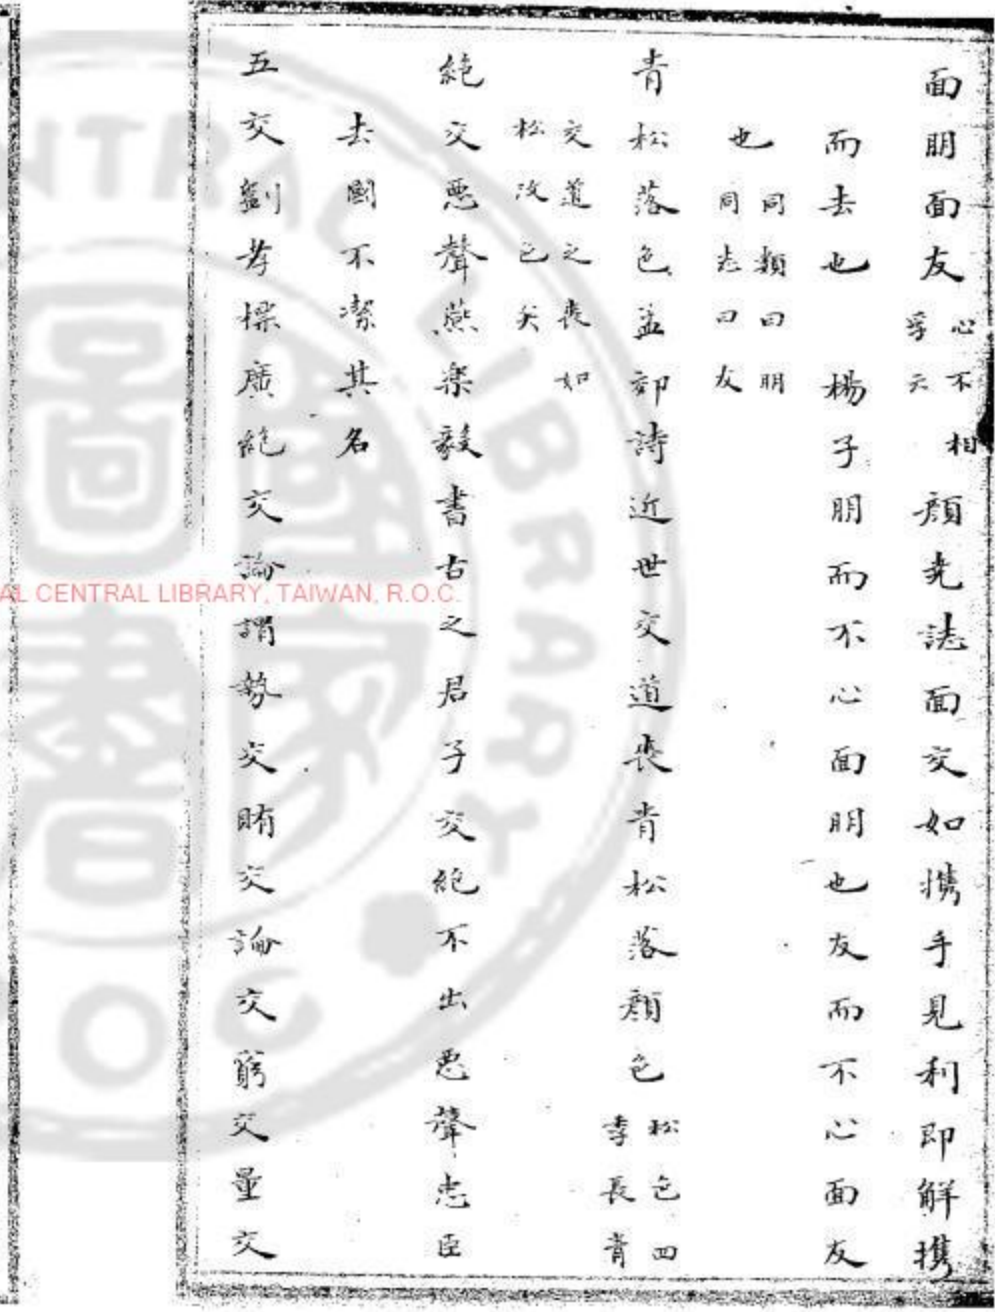 面朋面友心不相孚云顏堯誌面交如携手見利即解攜
而去也 楊子朋而不心面朋也友而不心面友
也同類曰朋同志曰友
青松落色孟郊詩近世交道喪青松落顏色松色四季長青
交道之喪如松改色矣
絶交惡聲燕樂毅書古之君子交絶不出惡聲忠臣
去國不潔其名
五交劉孝標廣絶交論謂勢交賄交論交窮交量交
NATIONAL CENTRAL LIBRARY, TAIWAN, R.O.C.
國家圖書